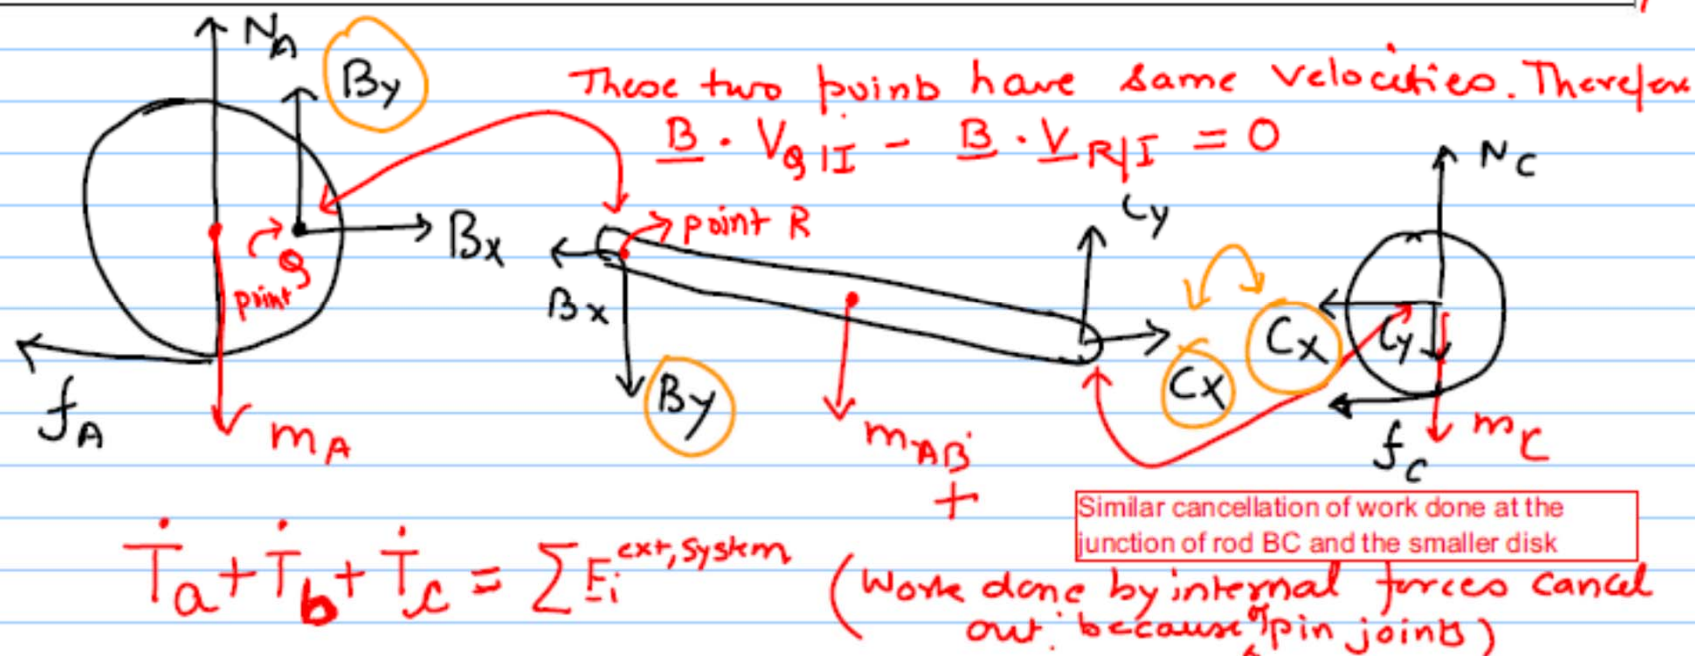 N_A
By
These two points have same velocities. Therefore
B . V_Q|I - B . V_R|I = 0
N_C
Cy
point R
Bx
Q
point
Bx
Cx
Cy
Cx
By
f_A
m_A
m_AB
f_C
m_C
+
Similar cancellation of work done at the
junction of rod BC and the smaller disk
Ṫa + Ṫb + Ṫc = ΣE_i^ext, system
(Work done by internal forces cancel
out because of pin joints)